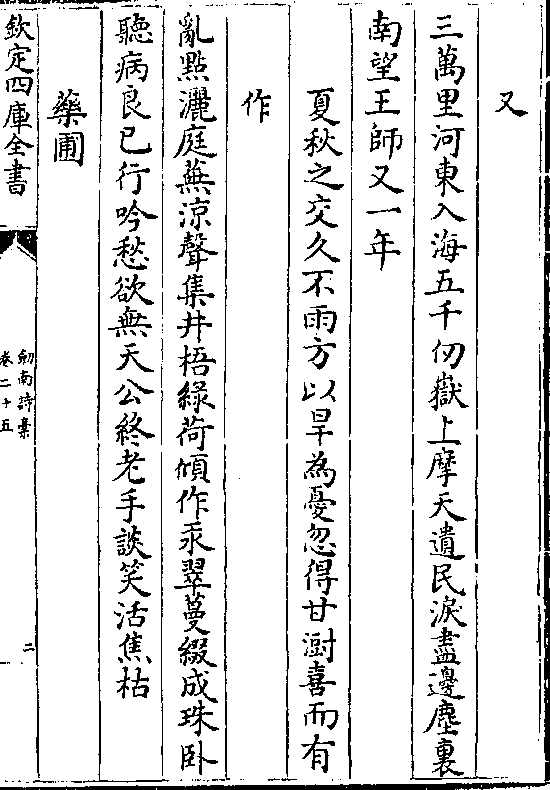 又
三萬里河東入海五千仞嶽上摩天遺民淚盡邊塵裏
南望王師又一年
夏秋之交久不雨方以旱為憂忽得甘澍喜而有
作
亂點灑庭蕪涼聲集井梧綠荷傾作汞翠蔓綴成珠卧
聽病良已行吟愁欲無天公終老手談笑活焦枯
藥圃
欽定四庫全書
劒南詩藁
卷二十五
二